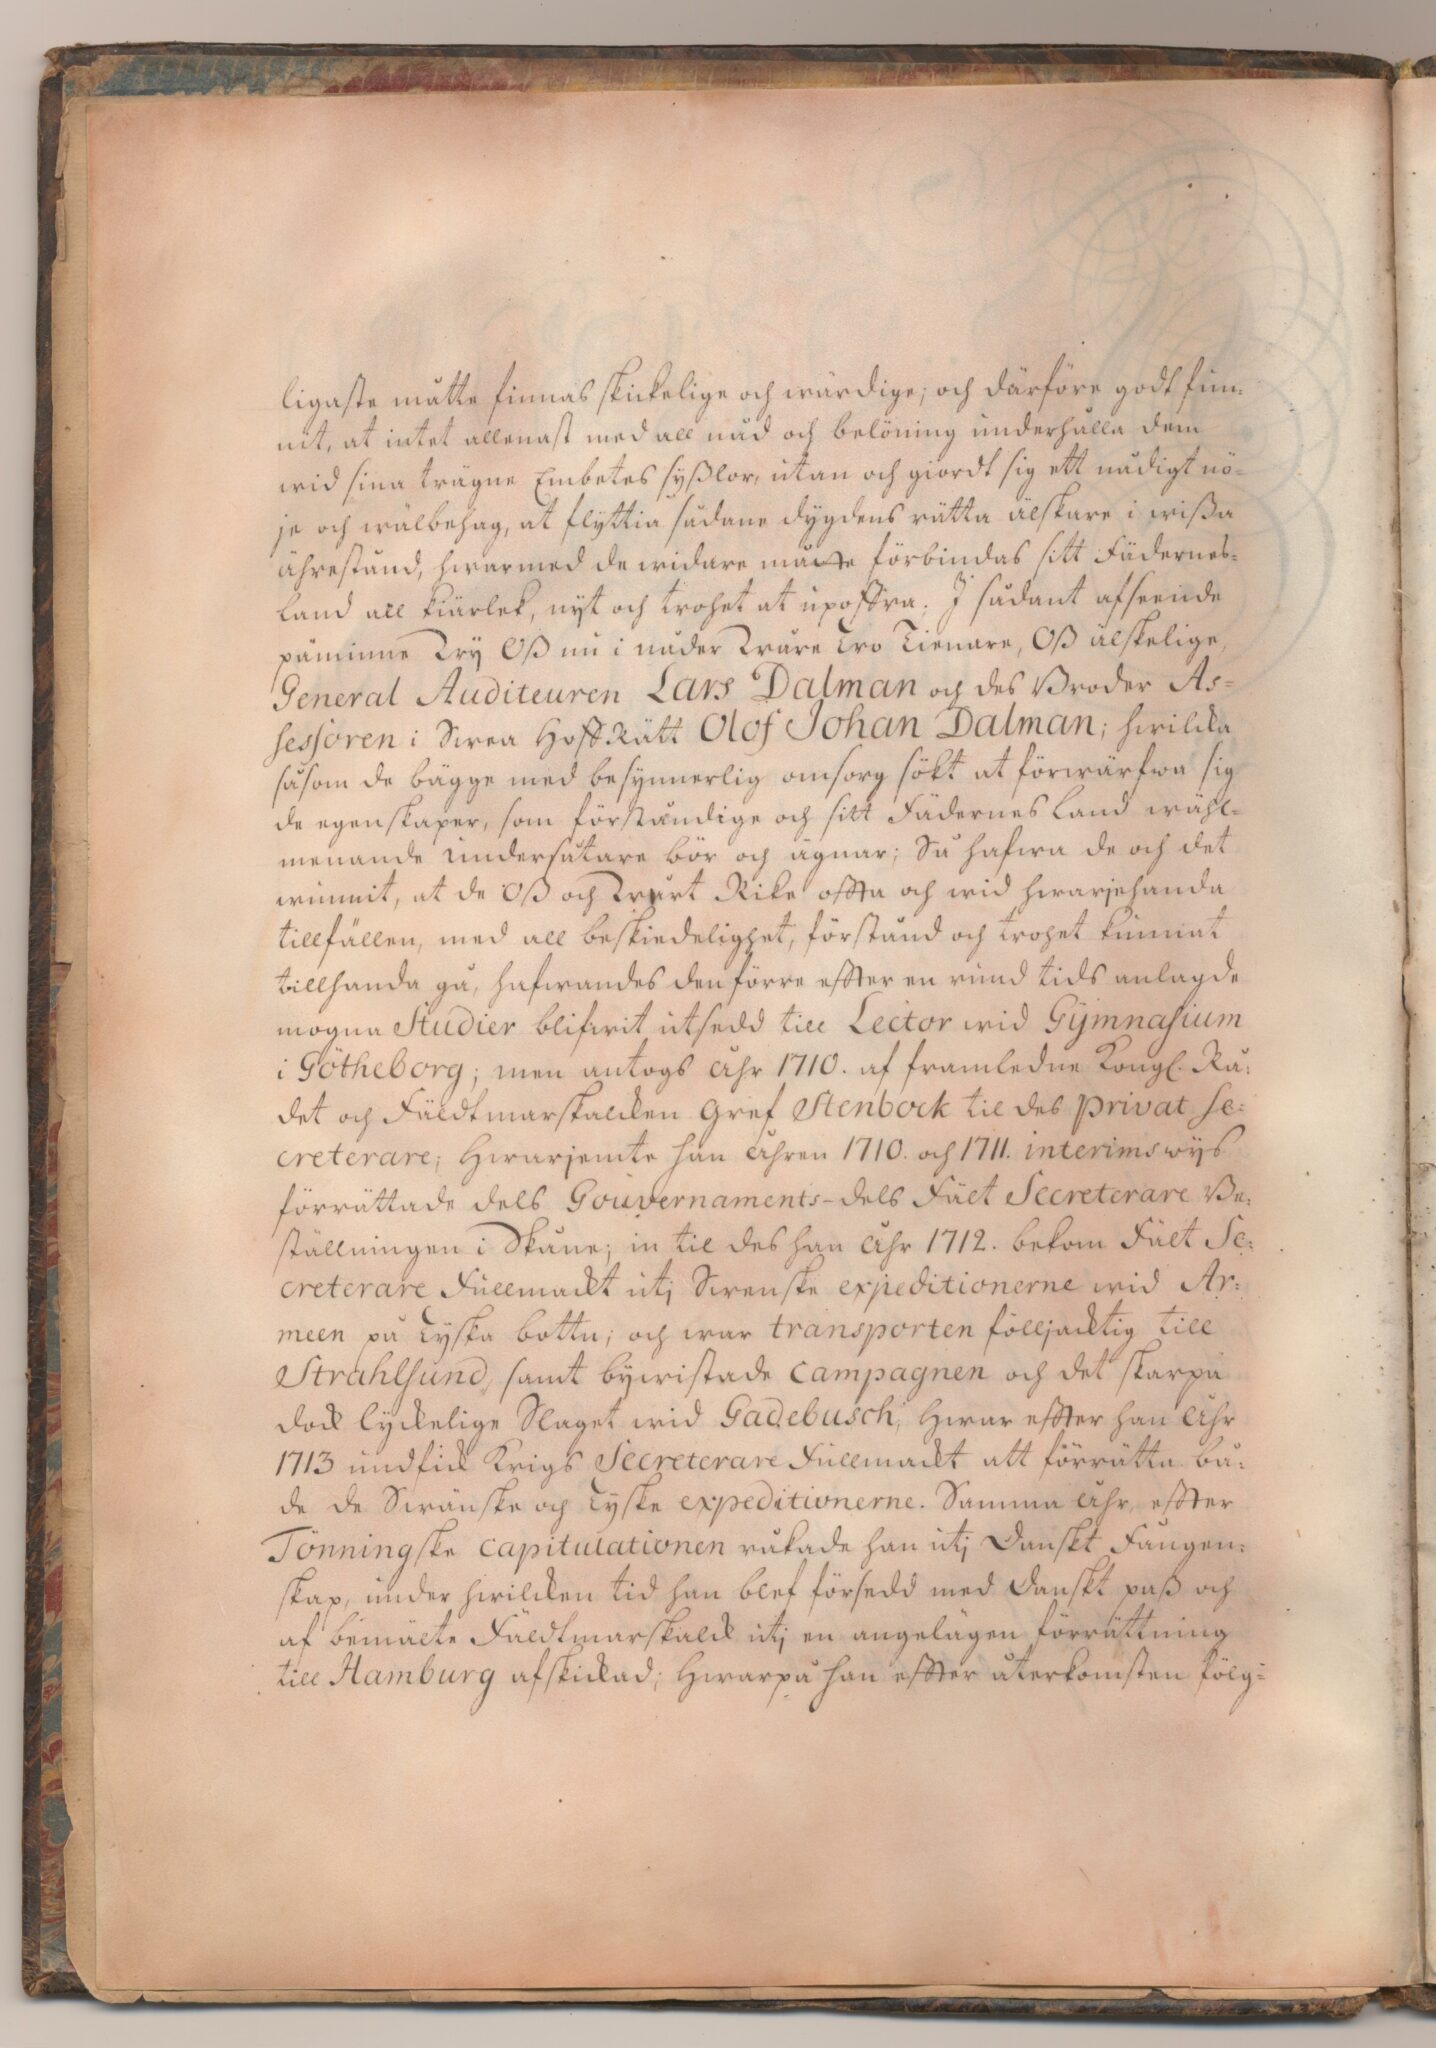 ligaste måtte finnas skickelige och wärdige; och därföre godt fun-
nit, at intet allenast med all nåd och belöning underhålla dem
wid sina trägne Embetes syßlor, utan och giordt sig ett nådigt nö-
je och wälbehag, at flyttia sådane dygdens rätta älskare i wißa
ährestånd, hwarmed de widare måtte förbindas sitt Fädernes-
land all kiärlek, nyt och trohet at upoffra. J sådant afseende
påminne Wy Oß nu i nåder Wåre Tro Tienare, Oß älskelige,
General Auditeuren Lars Dalman och des Broder As-
sessoren i Swea HoffRätt Olof Johan Dalman; hwilcka
såsom de bägge med besynnerlig omsorg sökt at förwärfwa sig
de egenskaper, som förståndige och sitt Fädernesland wähl-
menande undersåtare bör och ägnar; Så hafwa de och det
wunnit, at de Oß och Wårt Rike offta och wid hwarjehanda
tillfällen, med all beskiedelighet, förstånd och trohet kunnat
tillhanda gå, hafwandes den förre effter en rund tids anlagde
mogna Studier blifwit utsedd till Lector wid Gymnasium
i Götheborg; men antogs Åhr 1710. af framledne Kongl. Rå-
det och Fäldtmarskalcken Gref Stenbock til des Privat Se-
creterare; Hwarjemte han Åhren 1710. och 1711. interims wys
förrättade dels Gouvernaments- dels Fält Secreterare Be-
ställningen i Skåne; in til des han Åhr 1712. bekom Fält Se-
creterare Fullmackt utj Swenske expeditionerne wid Ar-
meen på Tyska bottn; och war transporten följacktig till
Strahlsund, samt bywistade Campagnen och det skarpa
dock lyckelige Slaget wid Gadebusch; Hwar effter han Åhr
1713 undfick Krigs Secreterare Fullmackt att förrätta bå-
de de Swänske och Tyske expeditionerne. Samma Åhr, effter
Tönningske Capitulationen råkade han utj Danskt Fången-
skap, under hwilcken tid han blef försedd med Danskt paß och
af bemälte Fäldtmarskalck utj en angelägen förrättning
till Hamburg afskickad; Hwarpå han effter återkomsten fölg-